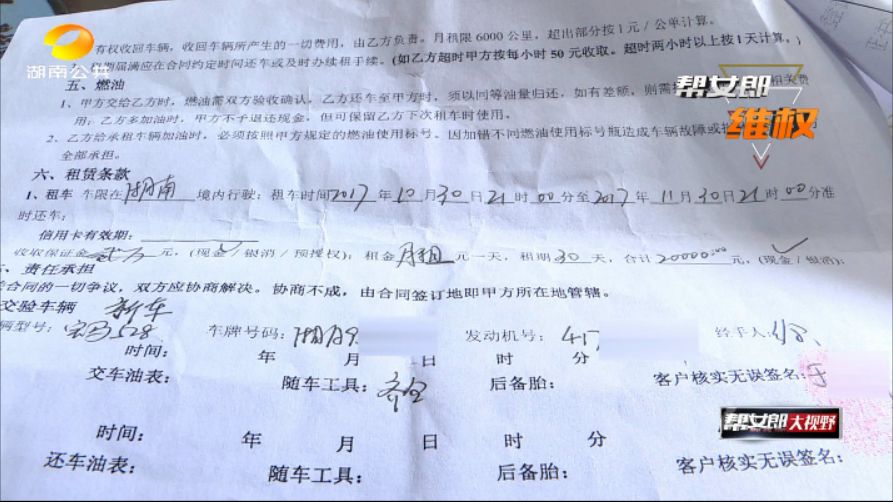 有权收回车辆，收回车辆所产生的一切费用，由乙方负责。月租限 6000 公里，超出部分按 1 元／公里计算。
期届满应在合同约定时间还车或及时办续租手续。(如乙方超时甲方按每小时 50 元收取。超时两小时以上按 1 天计算。)
湖南公共
五、燃油
1、甲方交给乙方时，燃油需双方验收确认，乙方还车至甲方时，须以同等油量归还，如有差额，则需
相关费
用；乙方多加油时，甲方不予退还现金，但可保留乙方下次租车时使用。
帮女郎
维权
2、乙方给承租车辆加油时，必须按照甲方规定的燃油使用标号。因加错不同燃油使用标号瓶造成车辆故障或
全部承担。
六、租赁条款
1、租车 车限在湖南境内行驶；租车时间2017年10月30日21时00分至2017年11月30日21时00分准
时还车；
信用卡有效期：
收取保证金贰万元，(现金／银消／预授权)；租金月租元一天，租期30天，合计20000元，(现金／银消)；
、责任承担
合同的一切争议，双方应协商解决。协商不成，由合同签订地即甲方所在地管辖。
交验车辆 新车
辆型号：宝马528 车牌号码： 发动机号：417 经手人：
时间： 年 月 日 时 分
交车油表： 随车工具：齐全 后备胎： 客户核实无误签名：
帮女郎大视野
时间： 年 月 日 时 分
还车油表： 随车工具： 后备胎： 客户核实无误签名：